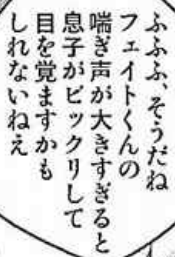 ふふふ、そうだね
フェイトくんの
喘ぎ声が大きすぎると
息子がビックリして
目を覚ますかも
しれないねえ